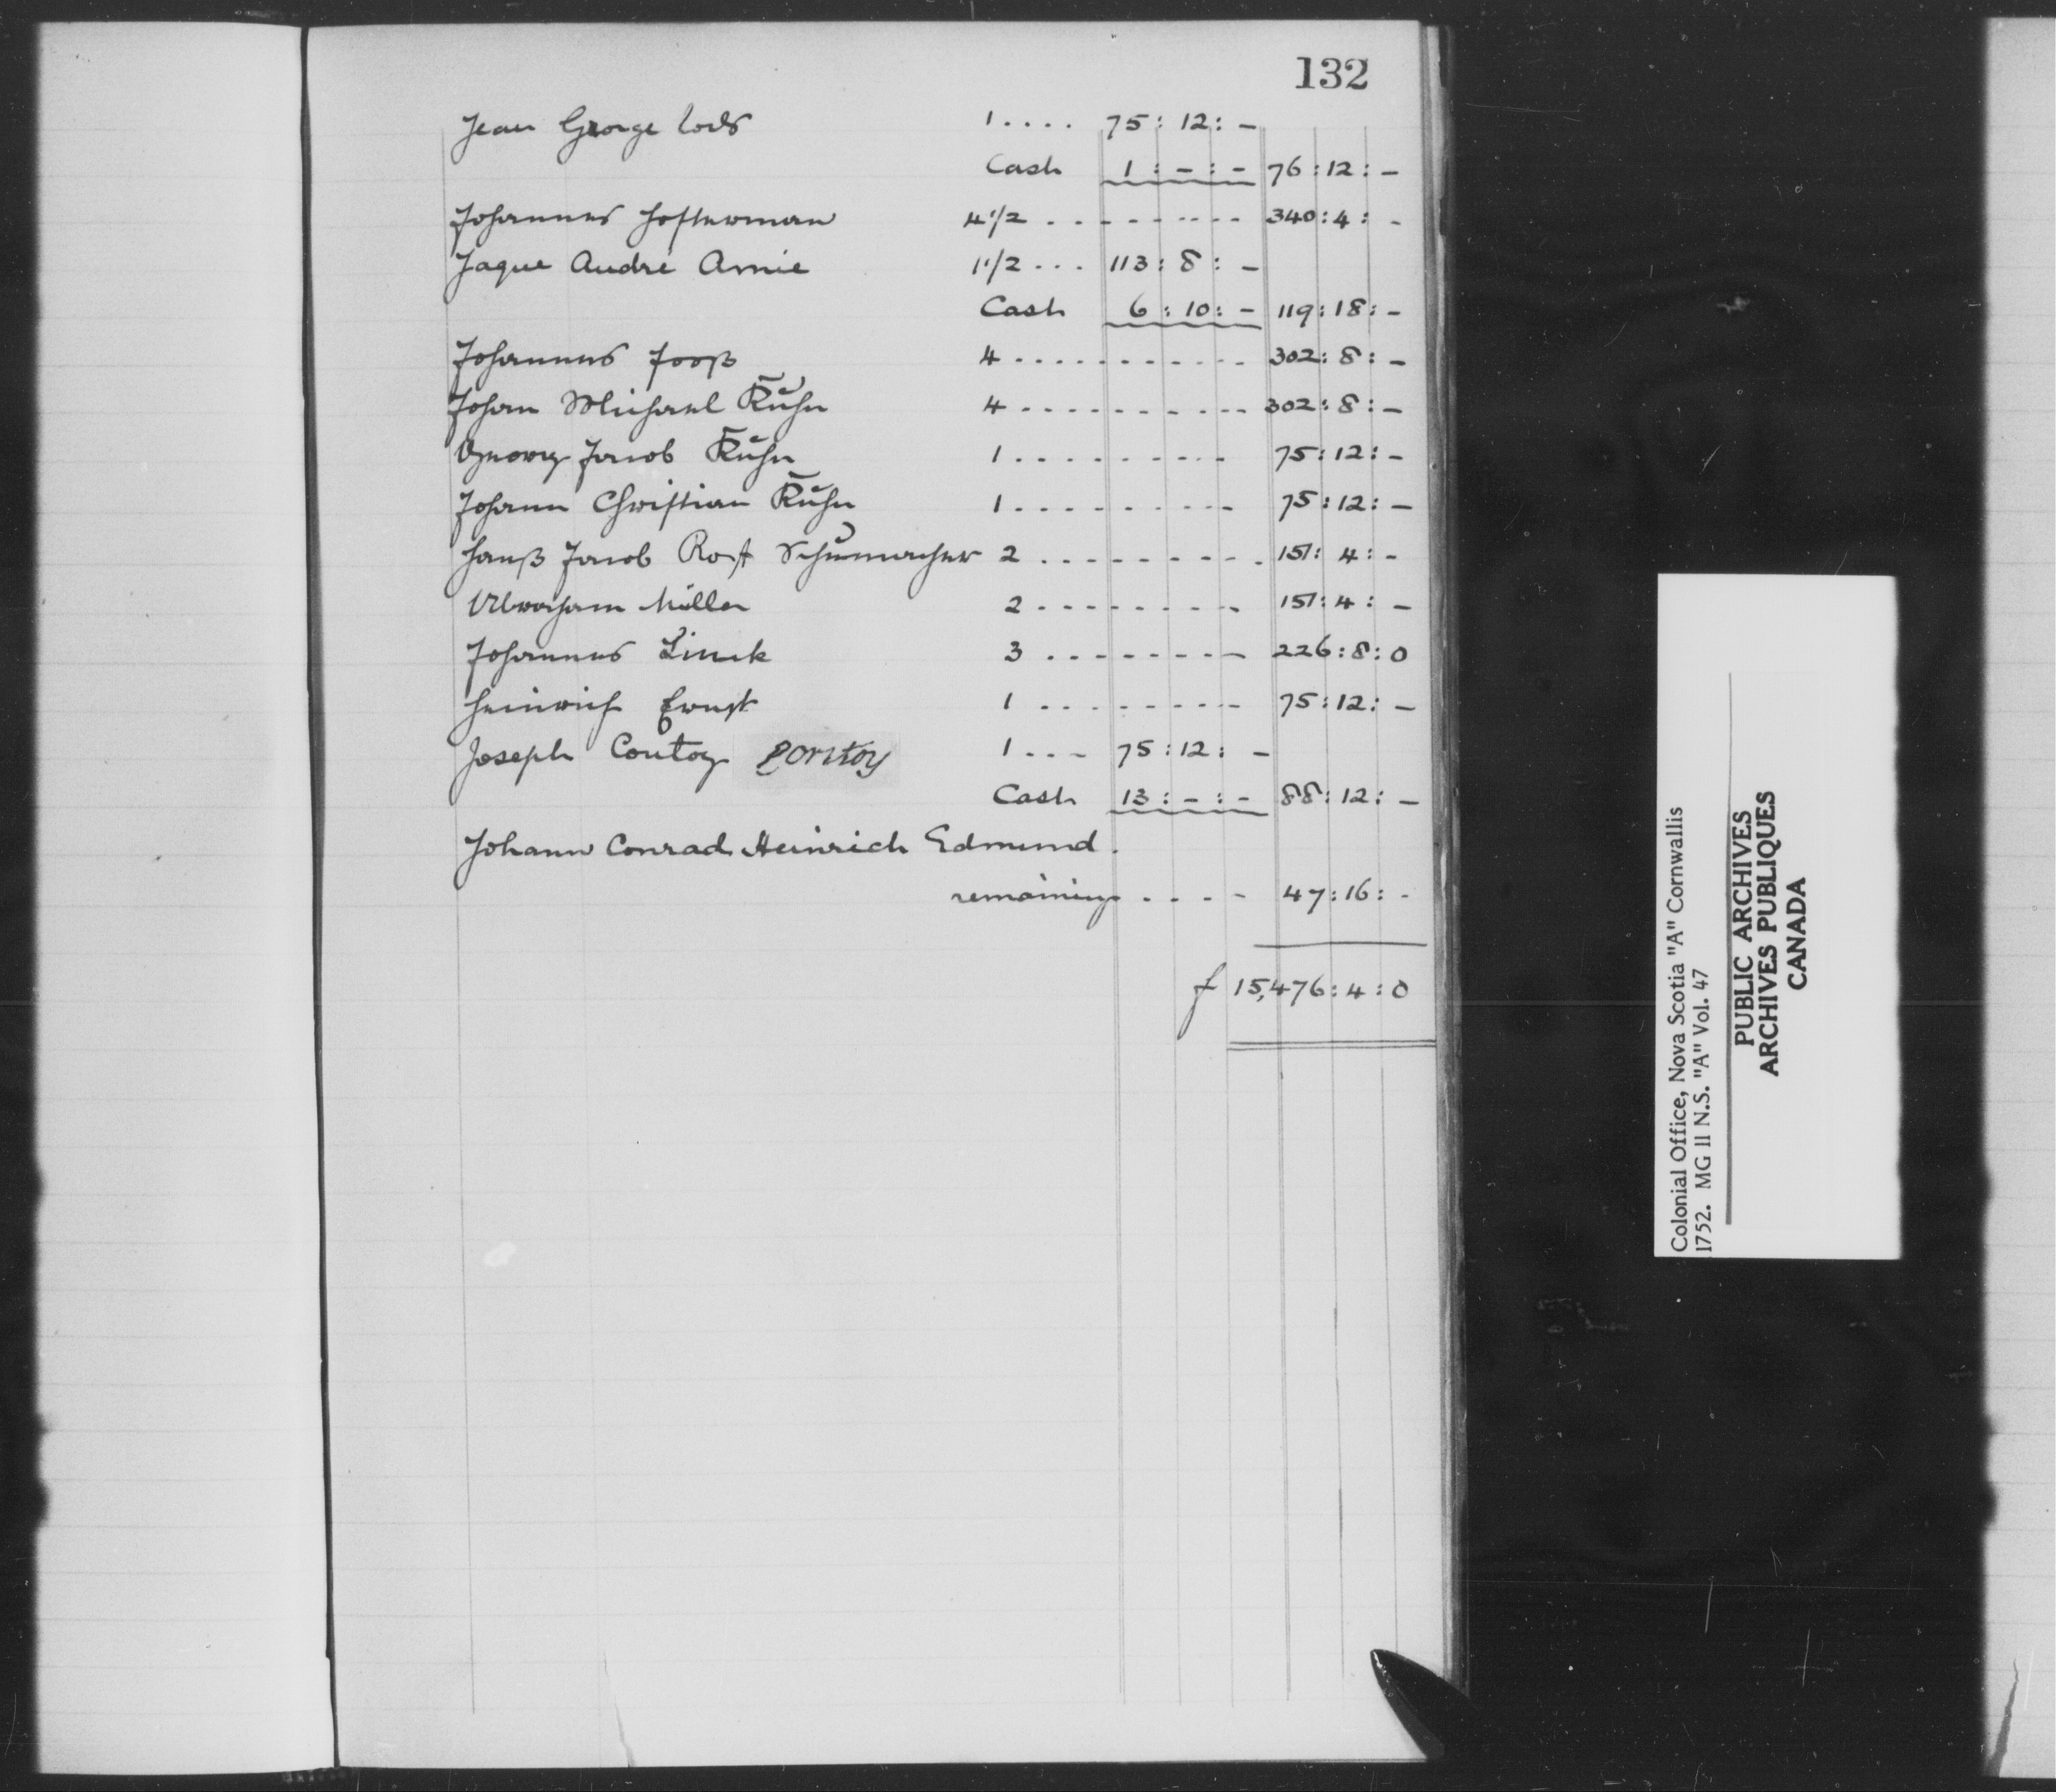 132
Jean George Lods 1 .... 75 : 12 : -
Cash 1 : - : - 76 : 12 : -
Johannes Hosterman 4 1/2 ... 340 : 4 : -
Jaque Andre Amie 1 1/2 ... 113 : 8 : -
Cash 6 : 10 : - 119 : 18 : -
Johannes Jooß 4 ... 302 : 8 : -
Johan Michael Kŭhn 4 ... 302 : 8 : -
Georg Jacob Kŭhn 1 ... 75 : 12 : -
Johann Christian Kŭhn 1 ... 75 : 12 : -
Hanß Jacob Rost Schŭmacher 2 ... 151 : 4 : -
Abraham Müller 2 ... 151 : 4 : -
Johannes Linck 3 ... 226 : 8 : 0
Heinrich Ernst 1 ... 75 : 12 : -
Joseph Contoy 1 ... 75 : 12 : -
Cash 13 : - : - 88 : 12 : -
Johann Conrad Heinrich Edmund.
remaining .... 47 : 16 : -
f 15,476 : 4 : 0
Colonial Office, Nova Scotia "A" Cornwallis
1752. MG 11 N.S. "A" Vol. 47
PUBLIC ARCHIVES
ARCHIVES PUBLIQUES
CANADA